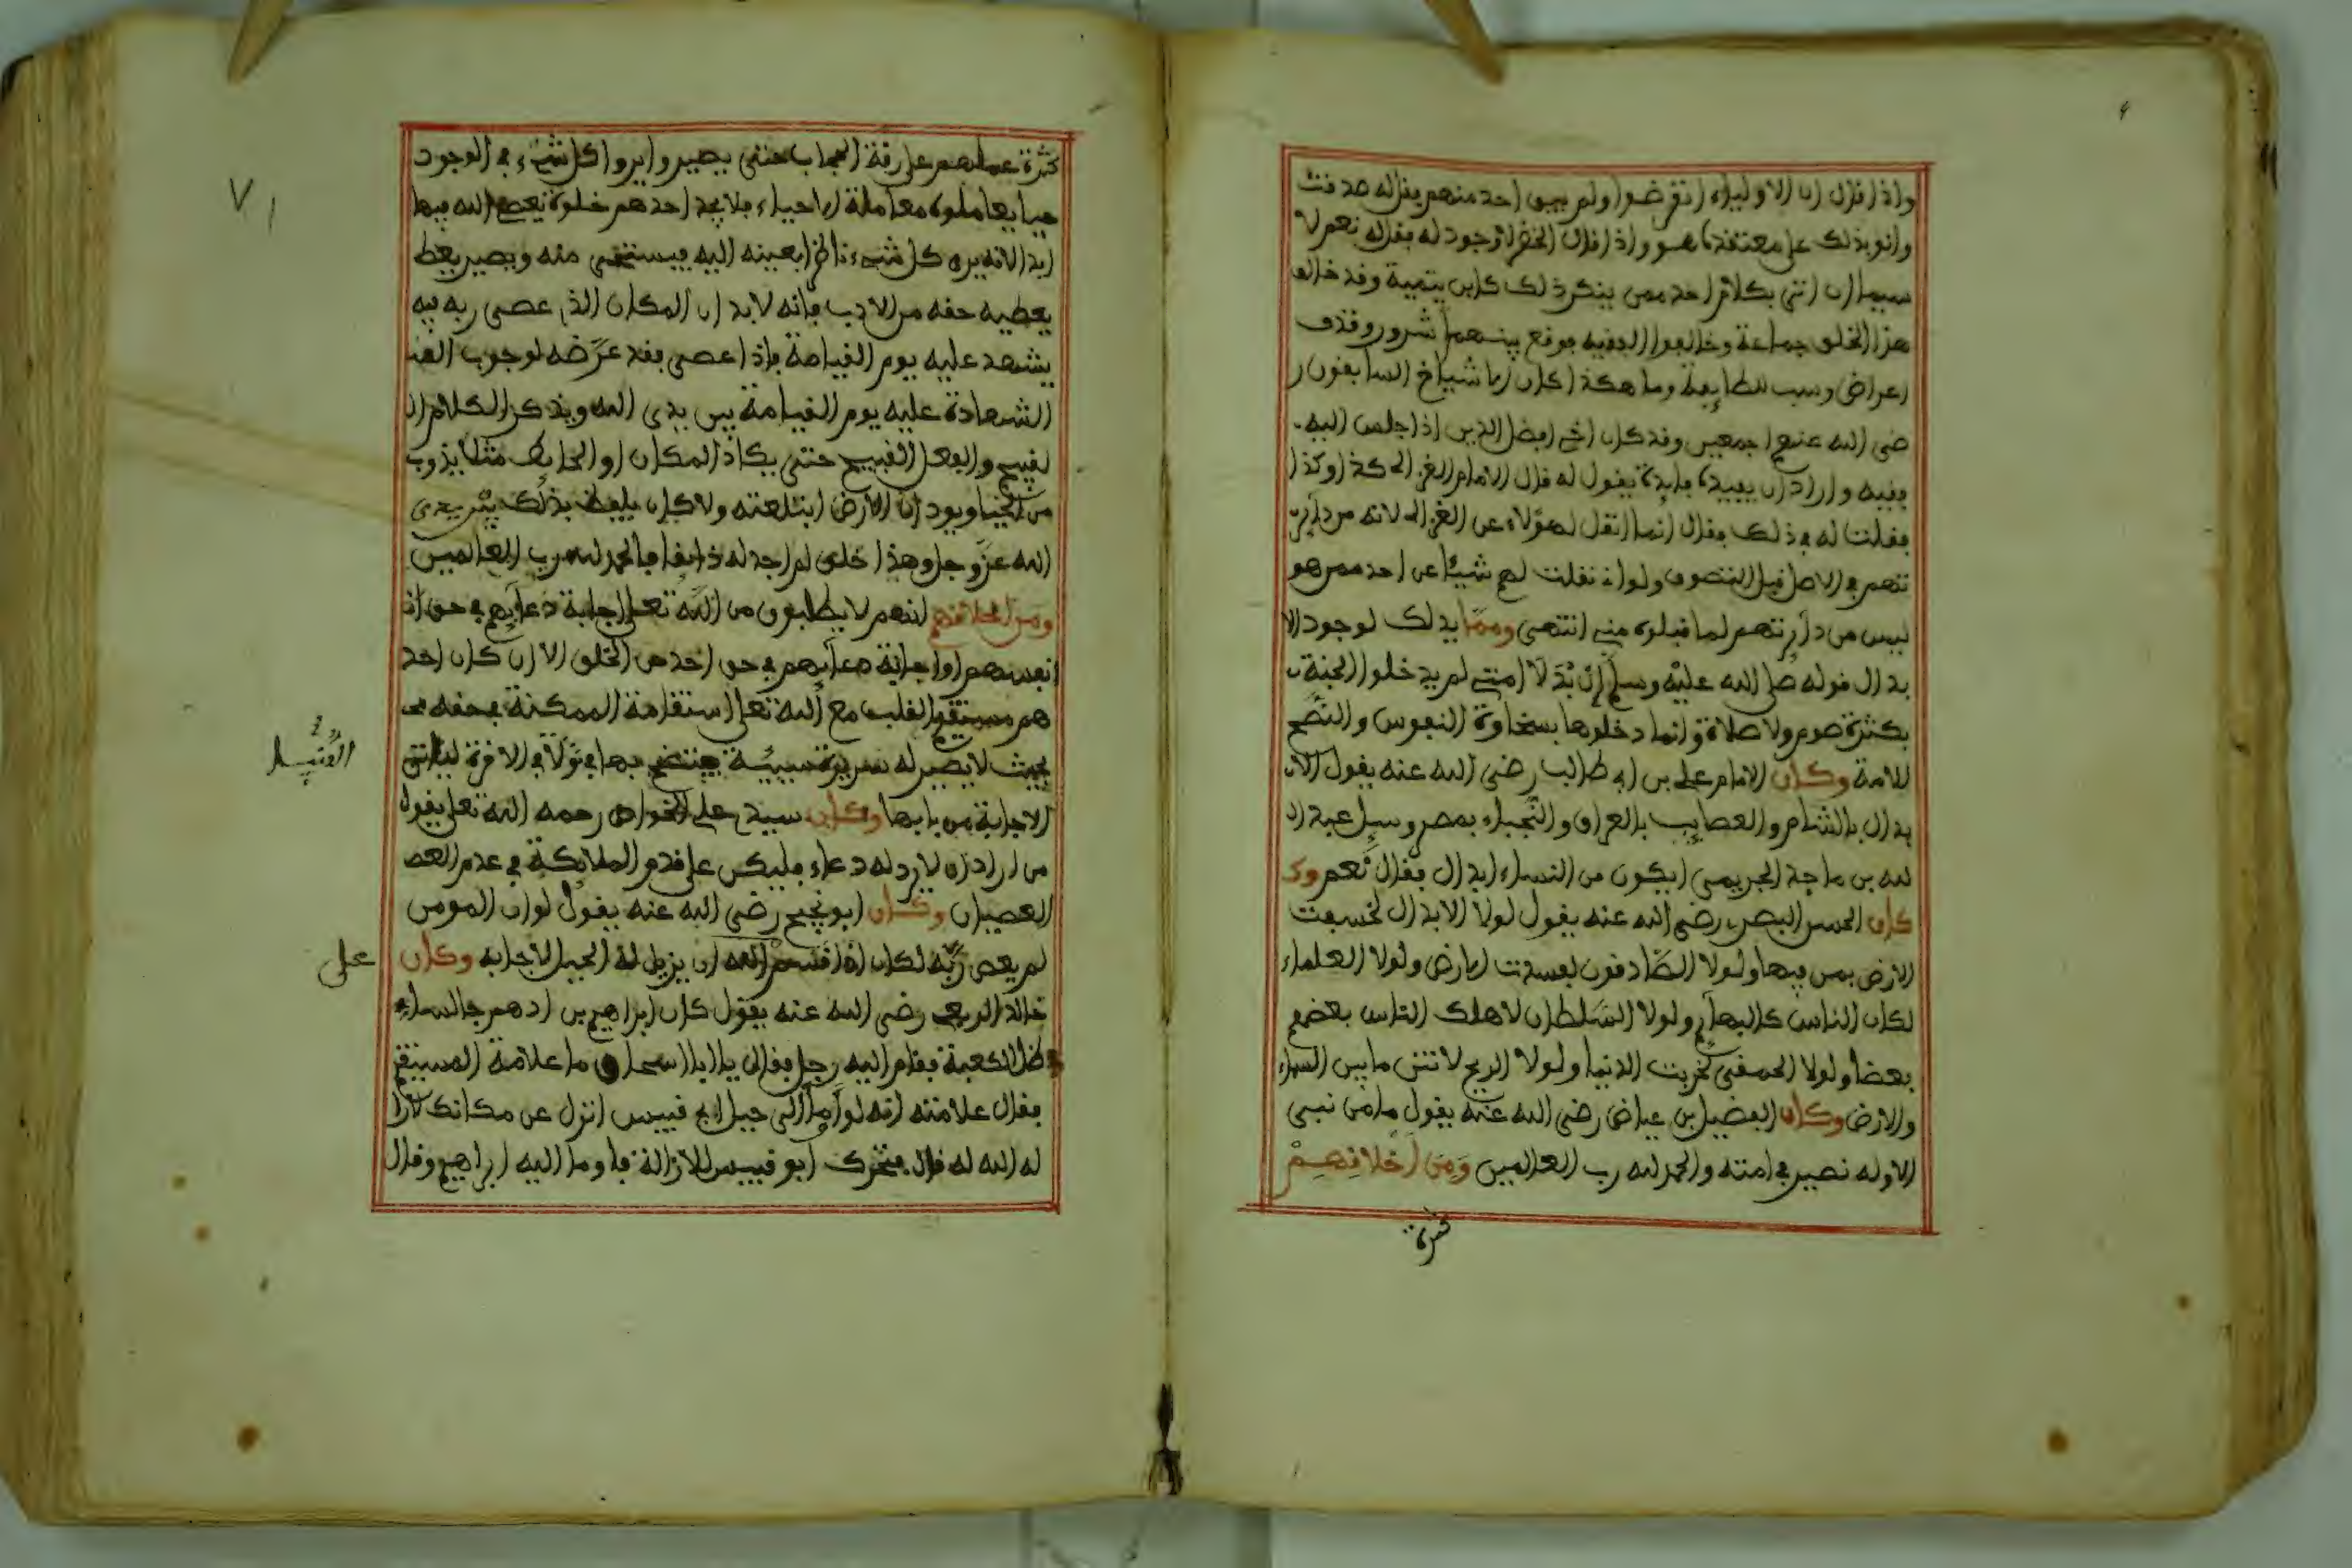 واذا قال ان الاولياء انقرضوا ولم يبق احد منهم يقال له صدقت
وانو بذلك على معتقدك هو واذا قال الخضر لا وجود له يقال له نعم لا
سيما ان اتى بكلام احد ممن ينكر ذلك كابن يتمية وقد خالف
هذا الخلق جماعة وخالفوا الفقيه فوقع بينهم شرور وقذف
اعراض وسب للطايفة وما هكذا كان الاشياخ السابقون ر
ضى الله عنهم اجمعين وقد كان اخى افضل الدين اذا جلس اليه
فقيه واراد ان يفيده فايدة يقول له قال الامام الغزالى كذا وكذا
فقلت له فى ذلك فقال انما انقل لهؤلاء عن الغزالى لانه من داير
تهم فى الاصل قبل التصوف ولو انى نقلت لهم شيئا عن احد ممن هو
ليس من دايرتهم لما قبلوه منى انتهى ومما يدلك لوجود الا
بدال قوله صلى الله عليه وسلم ان بدلا امتى لم يدخلوا الجنة ب
بكثرة صوم ولا صلاة وانما دخلوها بسخاوة النفوس والنصح
للامة وكان الامام على بن ابى طالب رضى الله عنه يقول الا
بدال بالشام والعصايب بالعراق والنجباء بمصر وسيل عبد ا
لله بن ماجة الجريمى ايكون من النساء ابدال فقال نعم وك
كان الحسن البصرى رضى الله عنه يقول لولا الابدال لخسفت
الارض بمن فيها ولولا الصادقون لفسدت الارض ولولا العلماء
لكان الناس كالبهايم ولولا السلطان لاهلك الناس بعضهم
بعضا ولولا الحمقى لخربت الدنيا ولولا الريح لانتن ما بين السماء
والارض وكان الفضيل بن عياض رضى الله عنه يقول ما من نبى
الا وله نصير فى امته والحمد لله رب العالمين ومن اخلاقهم
كثرة
٧١
كثرة عملهم على رقة الحجاب حتى يصيروا يروا كل شىء فى الوجود
حيا يعاملوه معاملة الاحياء فلا يجد احدهم خلوة يعصى الله فيها
ابدا لانه يرى كل شىء ناظرا بعينه اليه فيستحى منه ويصير يعط
يعطيه حقه من الادب فانه لا بد ان المكان الذى عصى ربه فيه
يشهد عليه يوم القيامة فاذا عصى فقد عرضه لوجوب
الشهادة عليه يوم القيامة بين يدى الله ويذكر الكلام ال
لقبيح والفعل القبيح حتى يكاد المكان او الحايط مثلا يذوب
من الحيا ويود ان الارض ابتلعته ولا كان يلفظ بذلك بين يدى
الله عز وجل وهذا خلق لم اجد له ذائقا فالحمد لله رب العالمين
ومن اخلاقهم انهم لا يطلبون من الله تعلى اجابة دعايهم فى حق ان
انفسهم او اجابة دعايهم فى حق احد من الخلق الا ان كان احد
هم مستقيم القلب مع الله تعلى استقامة الممكنة فى حقه
بحيث لا يصير له سريرة سيئة يفتضح بها فى ولا فى الاخرة لياتى
الدنيا
الاجابة من بابها وكان سيدى على الخواص رحمه الله تعلى يقول
من اراد ان لا يرد له دعاء فليكن على قدم الملائكة فى عدم العص
العصيان وكان ابو نجيح رضى الله عنه يقول لو ان المومن
لم يعص ربه لكان اذا اقسم الله ان يزيل له الجبل لاجابه وكان
على
خالد الربعى رضى الله عنه يقول كان ابراهيم بن ادهم جالسا
ظل الكعبة فقام اليه رجل فقال يا ابا اسحاق ما علامة المستقيم
فقال علامته انه لو اوما الى جبل ابى قبيس انزل عن مكانك لازا
له الله له قال فتحرك ابو قبيس للازالة فاوما اليه ابراهيم وقال